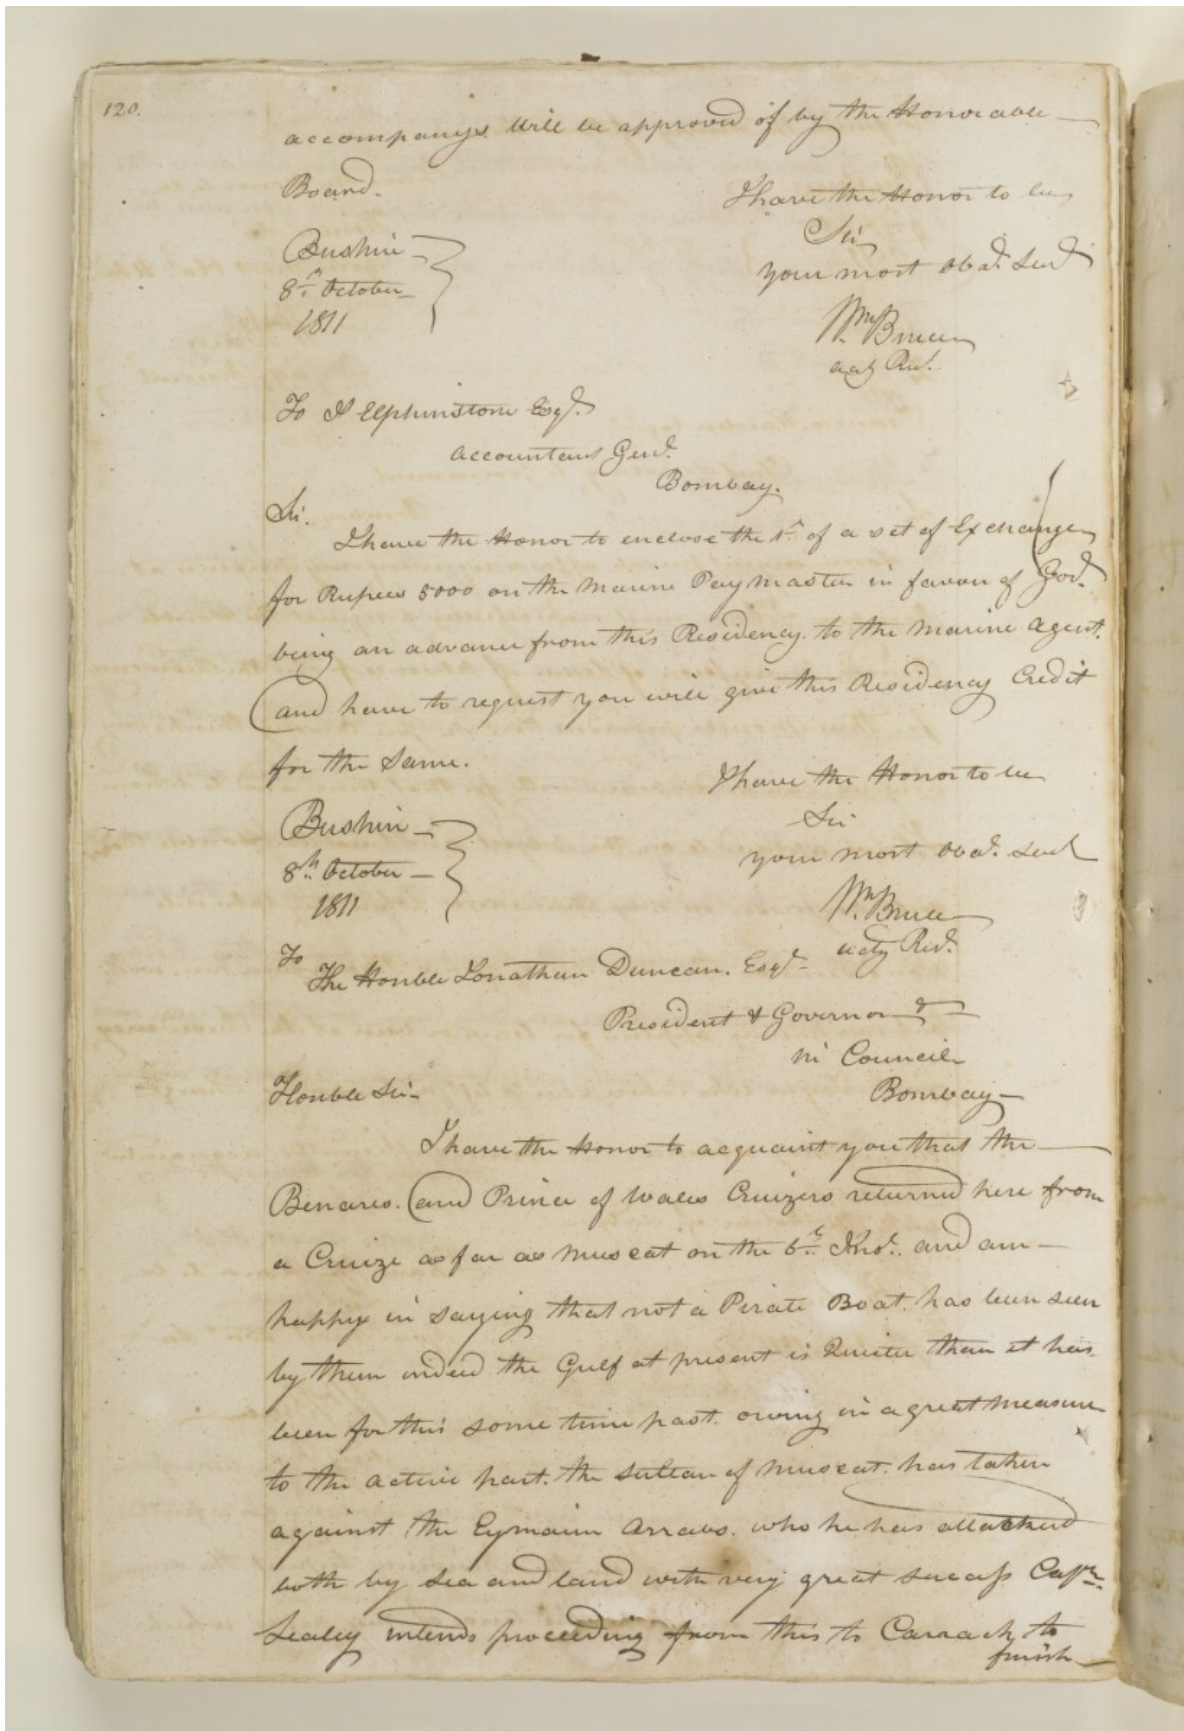 120.
accompanys will be approved of by the Honorable
Board.
I have the Honor to be
Sir
your most Obdt. Servt
Bushire
8th October
1811
Wm Bruce
actg Rest.
To J Elphinstone Esqr.
Accountant Genl.
Bombay.
Sir.
I have the Honor to enclose the 1st of a set of Exchange
for Rupees 5000 on the Marine Paymaster in favor of Govt.
being an advance from this Residency to the Marine Agent.
and have to request you will give this Residency Credit
for the Same.
I have the Honor to be
Sir
your most Obdt. Servt
Bushire
8th October
1811
Wm Bruce
actg Rest.
To
The Honble Jonathan Duncan. Esqr.
President & Governor &
in Council
Bombay
Honble Sir
I have the Honor to acquaint you that the
Benares. and Prince of Wales Cruizers returned here from
a Cruize as far as Muscat on the 6th Inst. and am
happy in saying that not a Pirate Boat. has been seen
by them indeed the Gulf at present is Quieter than it has
been for this some time past. owing in a great measure
to the active part. the Sultan of Muscat. has taken
against the Arrabs. who he has attacked
both by Sea and land with very great success Captn.
Sealey intends proceeding from this to Carrack to
finish